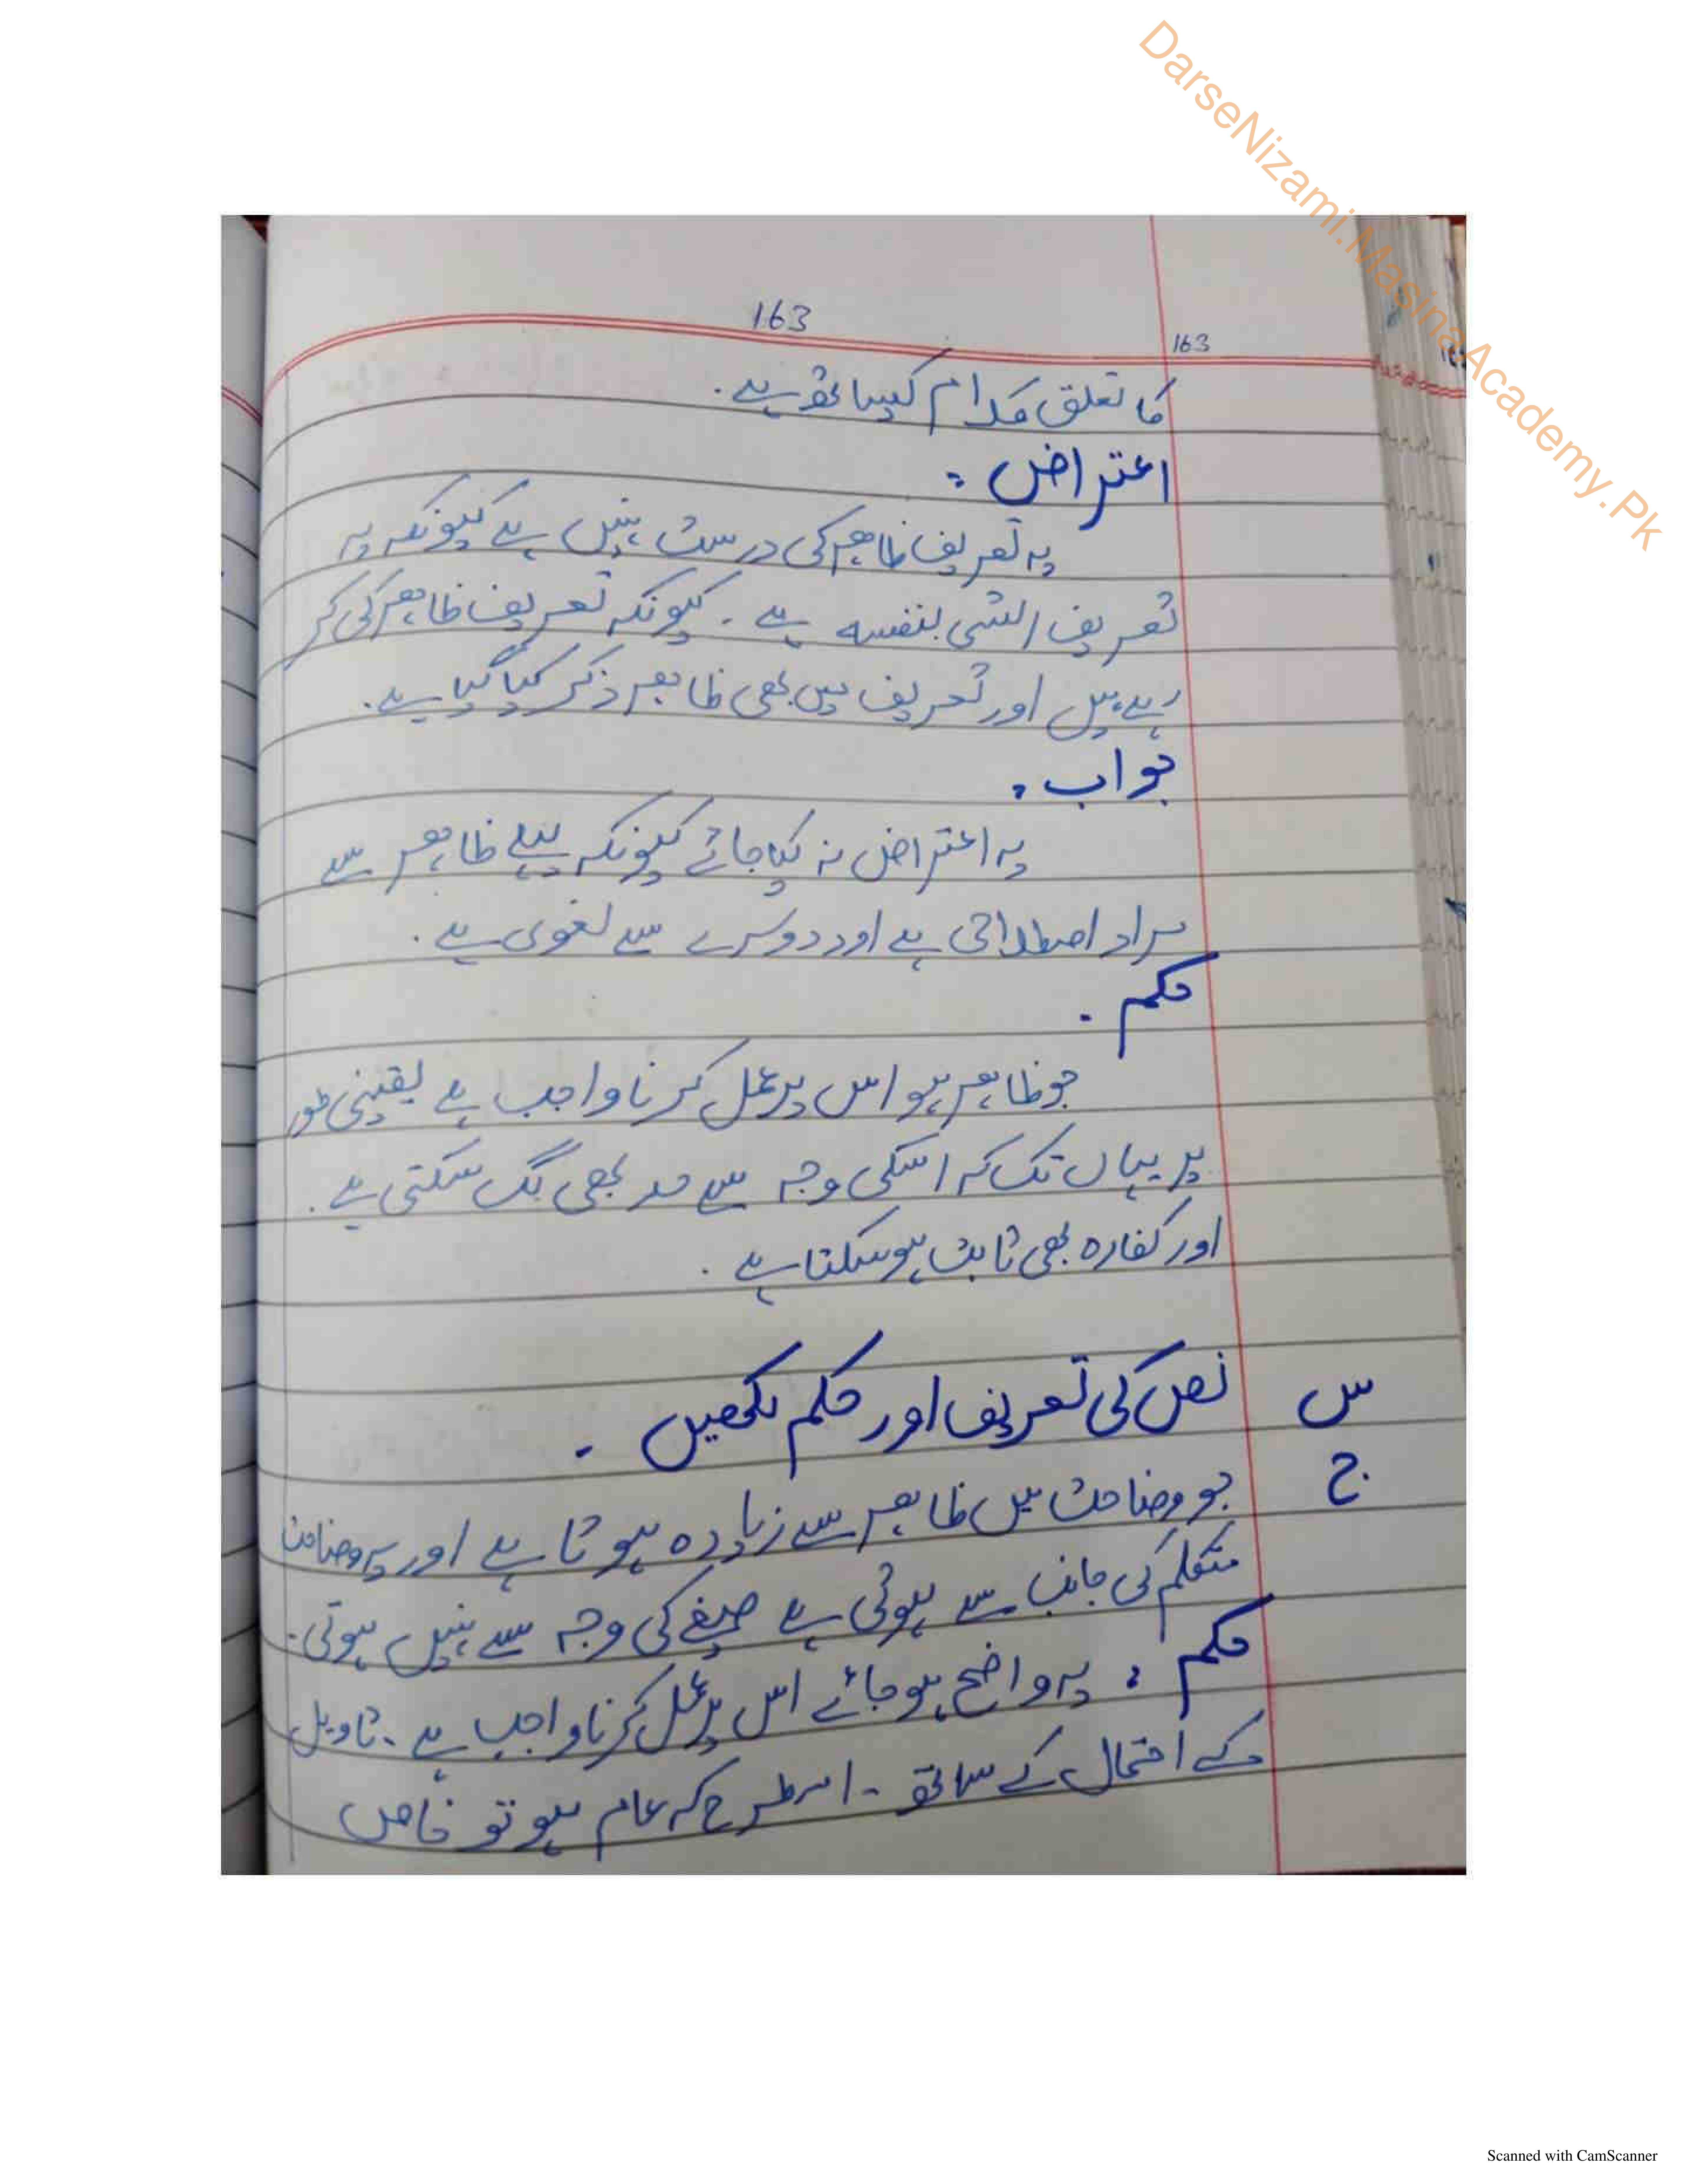 DarseNizami.MasinaAcademy.Pk
163
163
کا تعلق کلام کیساتھ ہے۔
اعتراض :
یہ تعریف ظاھر کی درست نہیں ہے کیونکہ یہ
تعریف الشی بنفسہ ہے ۔ کیونکہ تعریف ظاھر کی کر
رہے ہیں اور تعریف میں بھی ظاھر ذکر کیا گیا ہے۔
جواب :
یہ اعتراض نہ کیا جائے کیونکہ پہلے ظاھر سے
مراد اصطلاحی ہے اور دوسرے سے لغوی ہے ۔
حکم ۔
جو ظاھر ہو اس پر عمل کرنا واجب ہے یقینی طور
پر یہاں تک کہ اسکی وجہ سے حد بھی لگ سکتی ہے ۔
اور کفارہ بھی ثابت ہو سکتا ہے ۔
س نص کی تعریف اور حکم لکھیں ۔
ج جو وضاحت میں ظاھر سے زیادہ ہوتا ہے اور یہ وضاحت
متکلم کی جانب سے ہوئی ہے صیغے کی وجہ سے نہیں ہوتی۔
حکم : یہ واضح ہو جائے اس پر عمل کرنا واجب ہے ۔ تاویل
کے احتمال کے ساتھ ۔ اسطرح کہ عام ہو تو خاص
Scanned with CamScanner